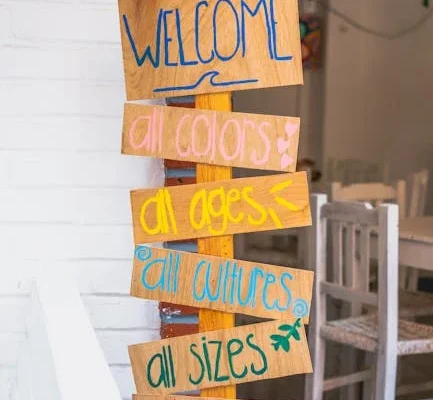 WELCOME
all colors
all ages
all cultures
all sizes